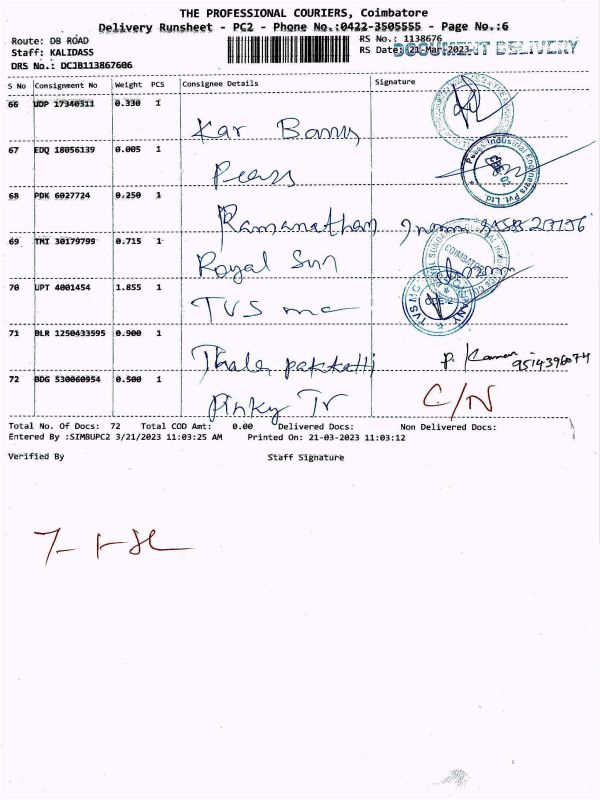 THE PROFESSIONAL COURIERS, Coimbatore
Delivery Runsheet - PC2 - Phone No.:0422-3505555 - Page No.:6
Route: DB ROAD RS No.: 1138676
Staff: KALIDASS RS Date: 21-Mar-2023
DOCUMENT DELIVERY
DRS No.: DCJB113867606
S No Consignment No Weight PCS Consignee Details Signature
66 UDP 17340311 0.330 1
Kar Banus
67 EDQ 18056139 0.005 1
Pears
68 PDK 6027724 0.250 1
Ramanathan
69 TMI 30179799 0.715 1
Royal Sun
COIMBATORE
70 UPT 4001454 1.855 1
TVS mc
71 BLR 1250433595 0.900 1
Thala pakkatti
72 BDG 530060954 0.500 1
Pinky Tr C/N
Total No. Of Docs: 72 Total COD Amt: 0.00 Delivered Docs: Non Delivered Docs:
Entered By :SIMBUPC2 3/21/2023 11:03:25 AM Printed On: 21-03-2023 11:03:12
Verified By Staff Signature